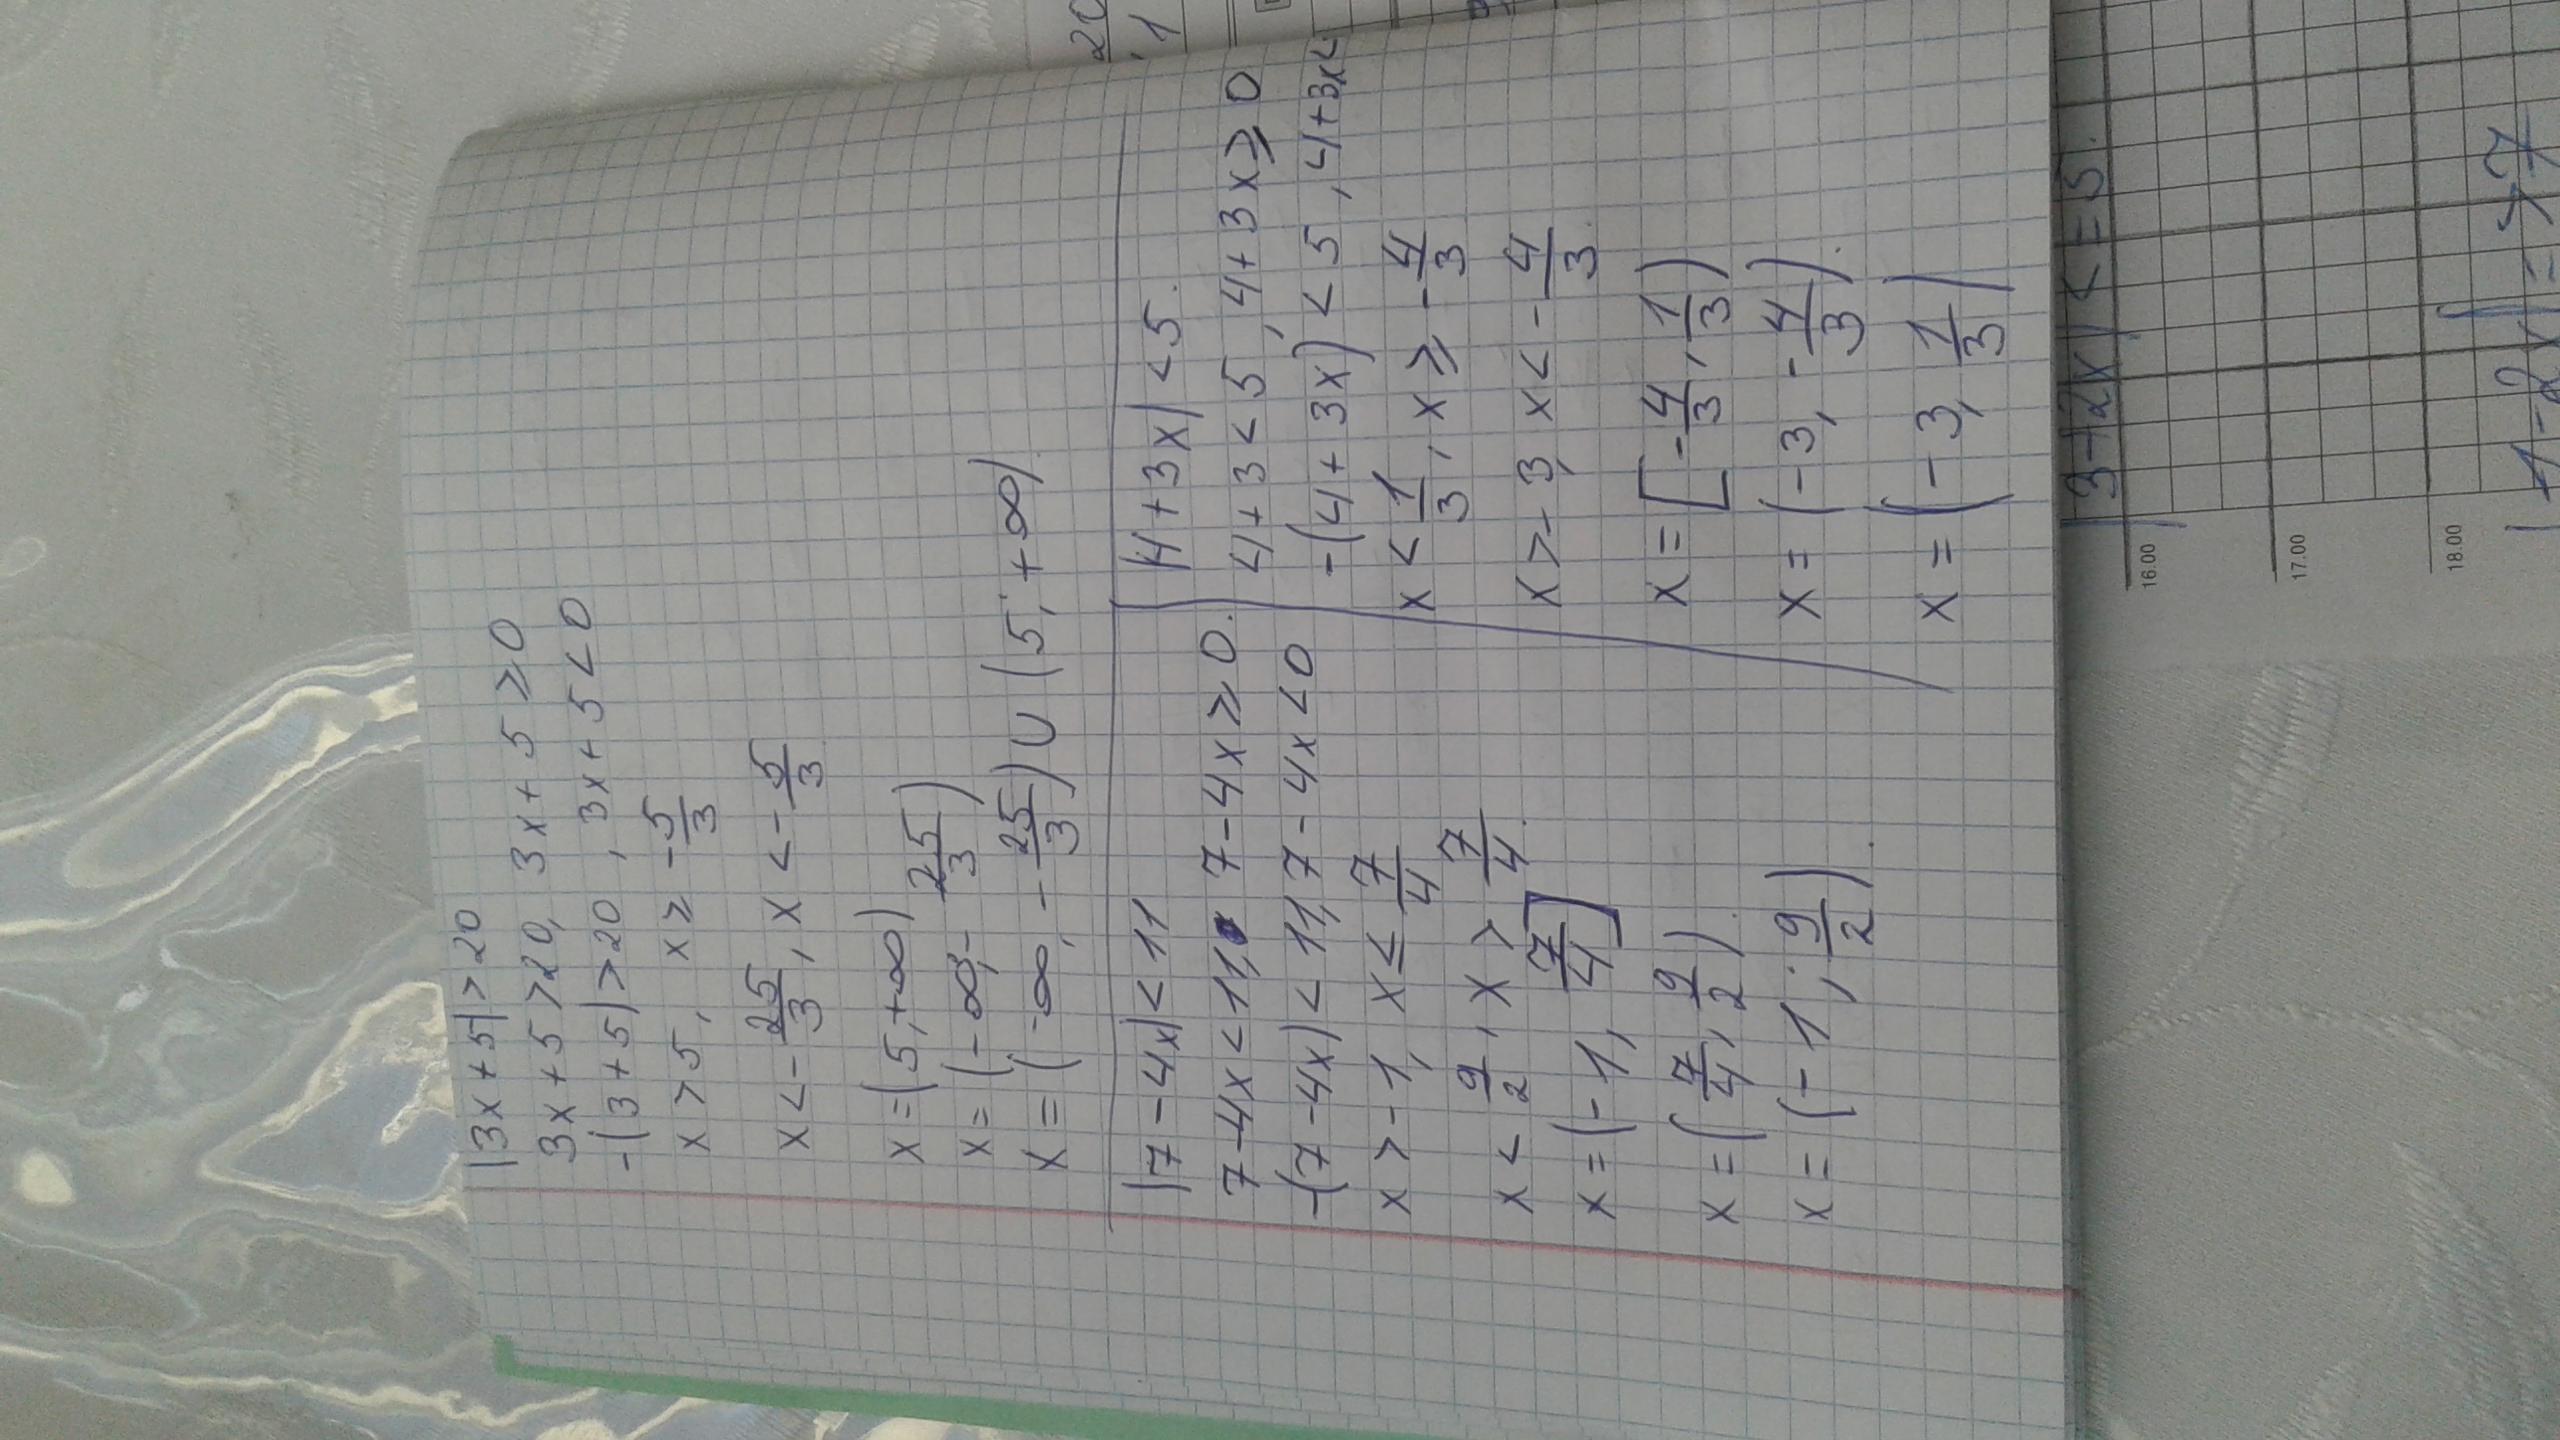 |3x+5|>20
3x+5>20, 3x+5⩾0
-(3+5)>20, 3x+5<0
x>5, x⩾-5/3
x<-25/3, x<-5/3
x=(5,+∞)
x=(-∞,-25/3)
x=(-∞,-25/3)∪(5;+∞)
|7-4x|<11
7-4x<11, 7-4x⩾0.
-(7-4x)<11, 7-4x<0
x>-1, x≤7/4
x<9/2, x>7/4.
x=(-1, 7/4]
x=(7/4, 9/2).
x=(-1; 9/2).
|4+3x|<5.
4+3<5, 4+3x⩾0
-(4+3x)<5, 4+3x<
x<1/3, x⩾-4/3
x>-3, x<-4/3.
x=[-4/3, 1/3)
x=(-3, -4/3).
x=(-3, 1/3)
20
1
16.00
17.00
18.00
|3+2x|<=5.
|1-2x|=>7